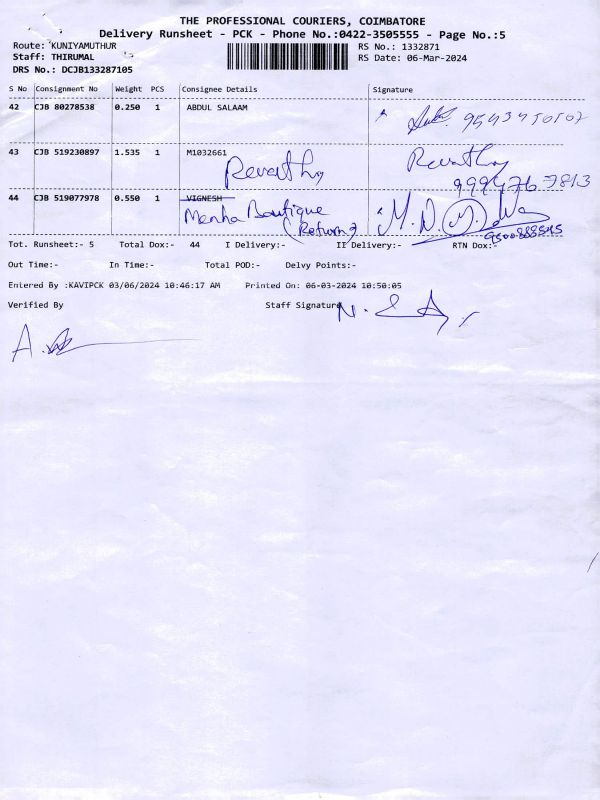 THE PROFESSIONAL COURIERS, COIMBATORE
Delivery Runsheet - PCK - Phone No.:0422-3505555 - Page No.:5
Route: KUNIYAMUTHUR
RS No.: 1332871
Staff: THIRUMAL
RS Date: 06-Mar-2024
DRS No.: DCJB133287105
S No Consignment No Weight PCS Consignee Details Signature
42 CJB 80278538 0.250 1 ABDUL SALAAM
43 CJB 519230897 1.535 1 M1032661
Revathy Revathy
44 CJB 519077978 0.550 1 VIGNESH
Menha Boutique
(Return)
Tot. Runsheet:- 5 Total Dox:- 44 I Delivery:- II Delivery:- RTN Dox:-
Out Time:- In Time:- Total POD:- Delvy Points:-
Entered By :KAVIPCK 03/06/2024 10:46:17 AM Printed On: 06-03-2024 10:50:05
Verified By Staff Signature